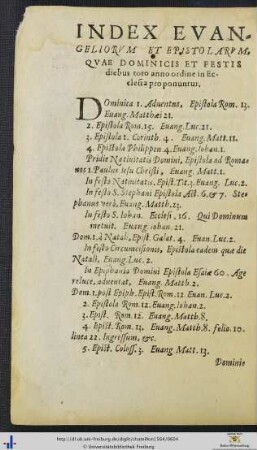 INDEX EVAN-
GELIORVM ET EPISTOLARVM,
QVAE DOMINICIS ET FESTIS
diebus toto anno ordine in Ec-
clesia proponuntur.
Dominica 1. Aduentus, Epistola Rom. 13.
Euang. Matthæi 21.
2. Epistola Rom. 15. Euang. Luc. 21.
3. Epistola 1. Corinth. 4. Euang. Matt. 11.
4. Epistola Philippen. 4. Euang. Iohan. 1.
Pridie Natiuitatis Domini, Epistola ad Roma-
nos 1. Paulus Iesu Christi, Euang. Matt. 1.
In festo Natiuitatis, Epist. Tit. 3. Euang. Luc. 2.
In festo S. Stephani Epistola Act. 6. & 7. Ste-
phanus verò, Euang. Matth. 23.
In festo S. Iohan. Ecclesi. 16. Qui Dominum
metuit. Euang. Iohan. 21.
Dom. 1. à Natali, Epist. Galat. 4. Euan. Luc. 2.
In festo Circumcisionis, Epistola eadem quæ die
Natali, Euang. Luc. 2.
In Epiphania Domini Epistola Esaiæ 60. Age
reluce, aduentat, Euang. Matth. 2.
Dom. 1. post Epiph. Epist. Rom. 12. Euan. Luc. 2.
2. Epistola Rom. 12. Euang. Iohan. 2.
3. Epist. Rom. 12. Euang. Matth. 8.
4. Epist. Rom. 13. Euang. Matth. 8. folio. 10.
linea 22. Ingressum, &c.
5. Epist. Coloss. 3. Euang. Matt. 13.
Dominic
http://dl.ub.uni-freiburg.de/diglit/chytraeus1564/0604
© Universitätsbibliothek Freiburg